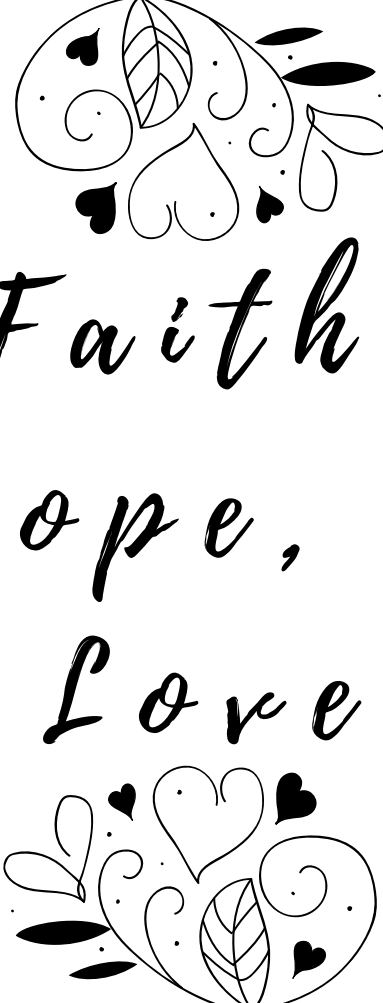 Faith
ope,
Love